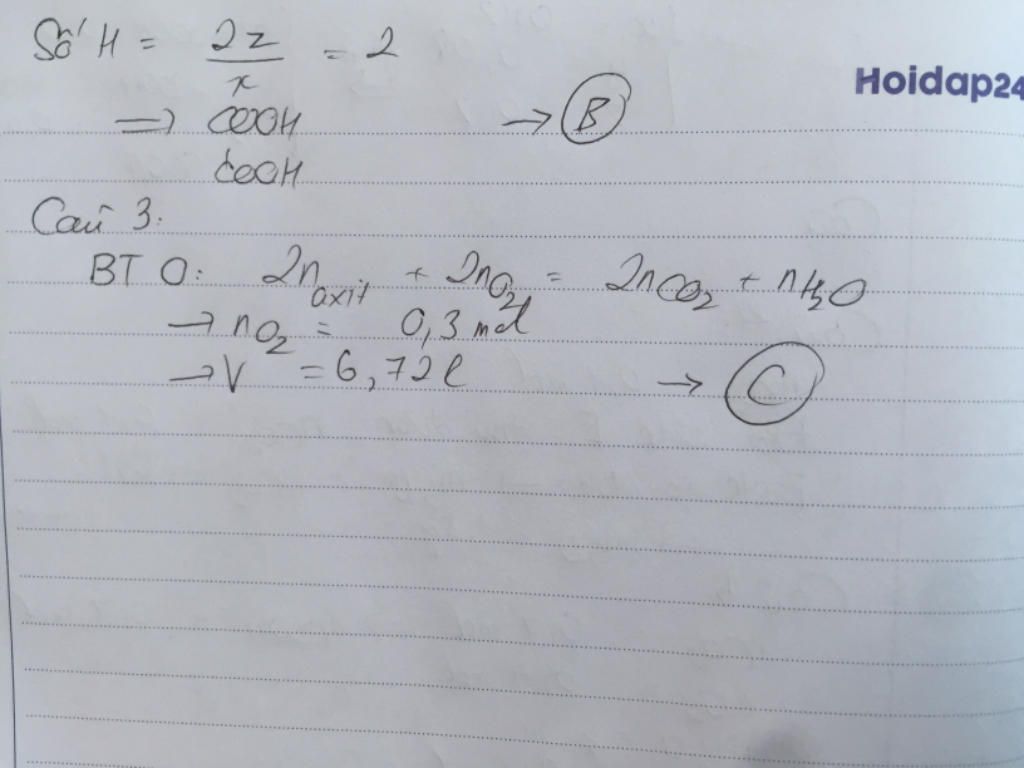 Số H = 2z/x = 2
Hoidap24
=> COOH → B
COOH
Câu 3:
BT O: 2n axit + 2nO2 = 2nCO2 + nH2O
→ nO2 = 0,3 mol
→ V = 6,72l → C